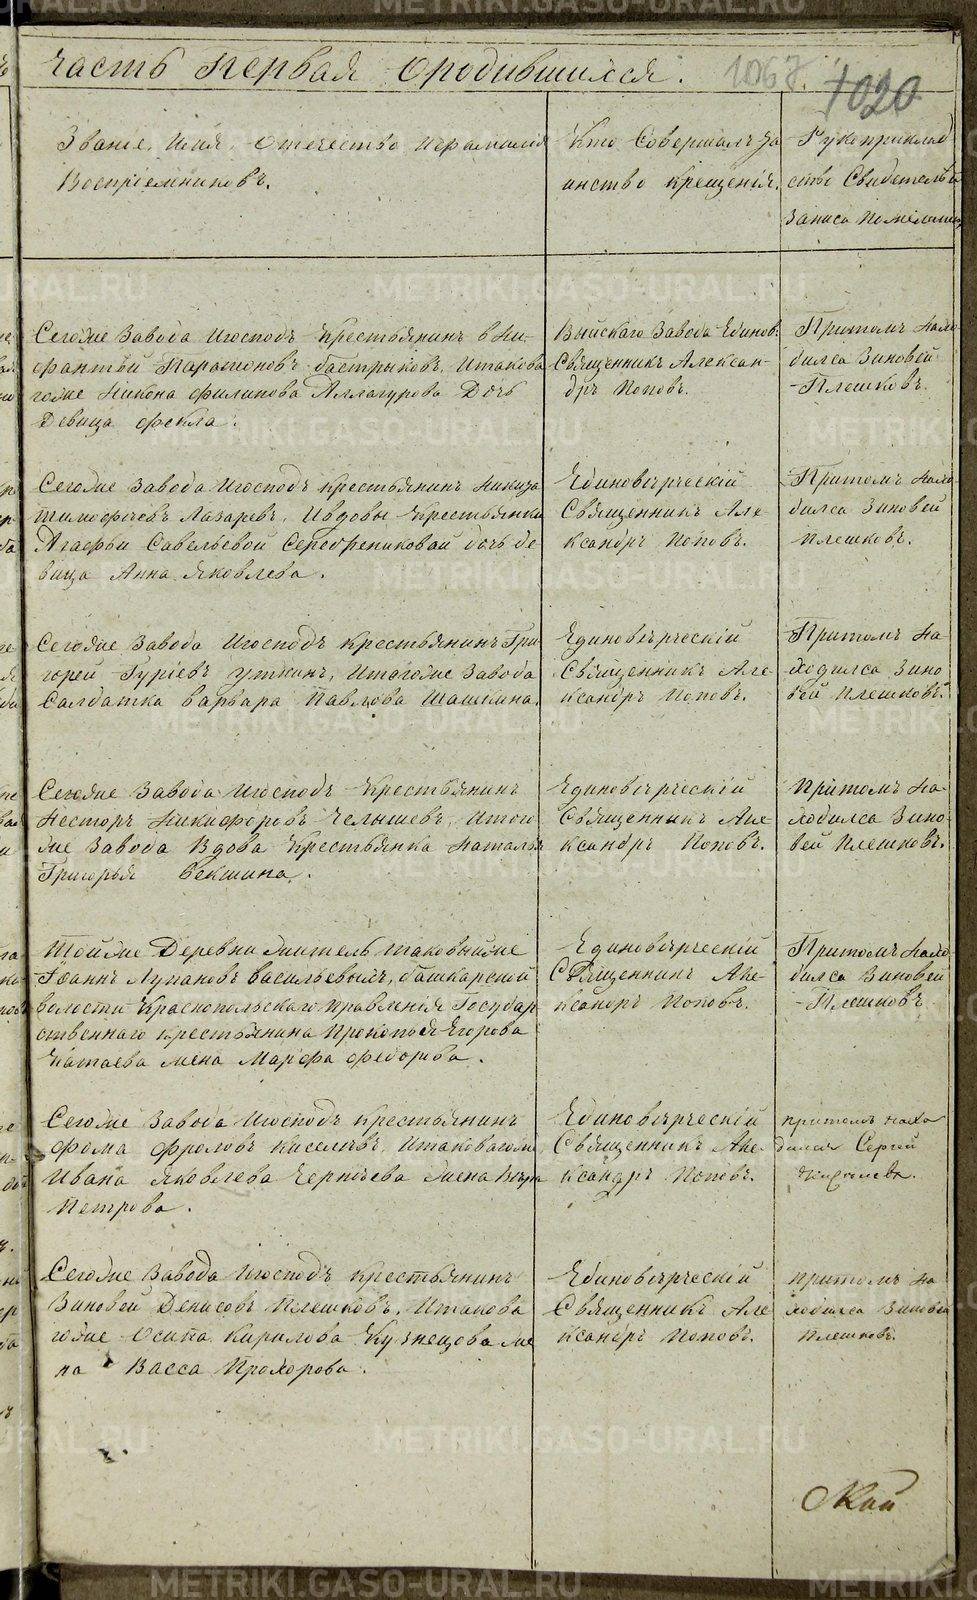 Часть первая о родившихся.
1067.
1020
Званiе, Имя, Отечество ифамилiя
Воспрiемниковъ.
Кто Совершалъ та
инство крещенiя.
Рукоприклад
ство Свидетелей
Записи
Сегоже Завода Игосподъ Крестьянинъ
Парамоновъ Бастрыковъ, Итакова
гоже Никона Филипова Дочь
Девица Фекла.
Выйскаго Завода Единов.
Священникъ Алексан-
дръ Поповъ.
Притомъ нахо
дился Зиновей
Плешковъ.
Сегоже Завода Игосподъ крестьянинъ Никита
Тимофеевъ Лазаревъ, Ивдовы Крестьянки
Агафьи Савельевой Серебрениковой дочь де
вица Анна Яковлева.
Единоверческiй
Священникъ Але
ксандръ Поповъ.
Притомъ нахо
дился Зиновей
Плешковъ.
Сегоже Завода Игосподъ Крестьянинъ Гри
горей Гурiевъ Уткинъ, Итогоже Завода
Салдатка Варвара Павлова Шашкина.
Единоверческiй
Священникъ Але
ксандръ Поповъ.
Притомъ на
ходился Зино
вей Плешковъ.
Сегоже Завода Игосподъ Крестьянинъ
Несторъ Никифоровъ Челышевъ, Итого
же Завода Вдова Крестьянка Наталья
Григорья Векшина.
Единоверческiй
Священникъ Але
ксандръ Поповъ.
Притомъ на-
ходился Зино
вей Плешковъ.
Тойже Деревни житель таковыйже
Iоаннъ Васильевымъ, башкарской
волости Краснопольскаго правленiя Государ
ственнаго крестьянина Прокопья Егорова
жена Марфа Федорова.
Единоверческiй
Священникъ Але-
ксандръ Поповъ.
Притомъ нахо
дился Зиновей
Плешковъ
Сегоже Завода Игосподъ крестьянинъ
Фома Фроловъ Киселевъ, Итаковагоже
Ивана Яковлева жена Вера
Петрова.
Единоверческiй
Священникъ Але-
ксандръ Поповъ.
притомъ нахо
дился Сергей
Сегоже Завода Игосподъ крестьянинъ
Зиновей Денисовъ Плешковъ, Итакова
гоже Осипа Кирилова Кузнецова же
на Васса Прохорова.
Единоверческiй
Священникъ Але
ксандръ Поповъ.
притомъ на
ходился Зиновей
Плешковъ
METRIKI.GASO-URAL.RU